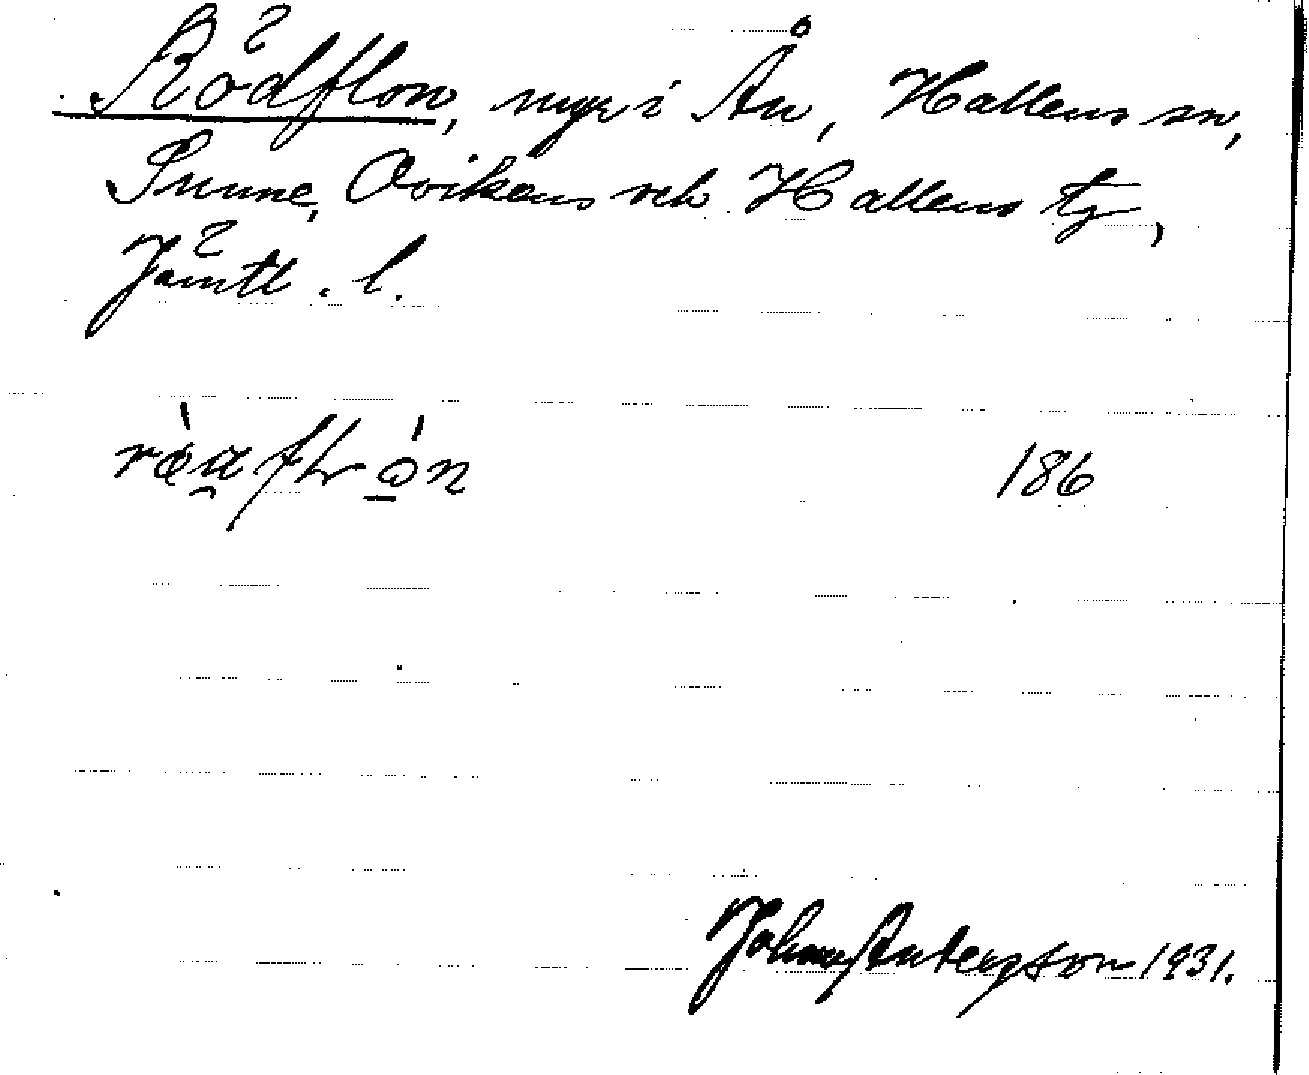 Rödflon, myr i Ån, Hallens sn,
Sunne, Ovikens och Hallens tg,
Jämtl. l.
186
Johan Anterzson 1931.